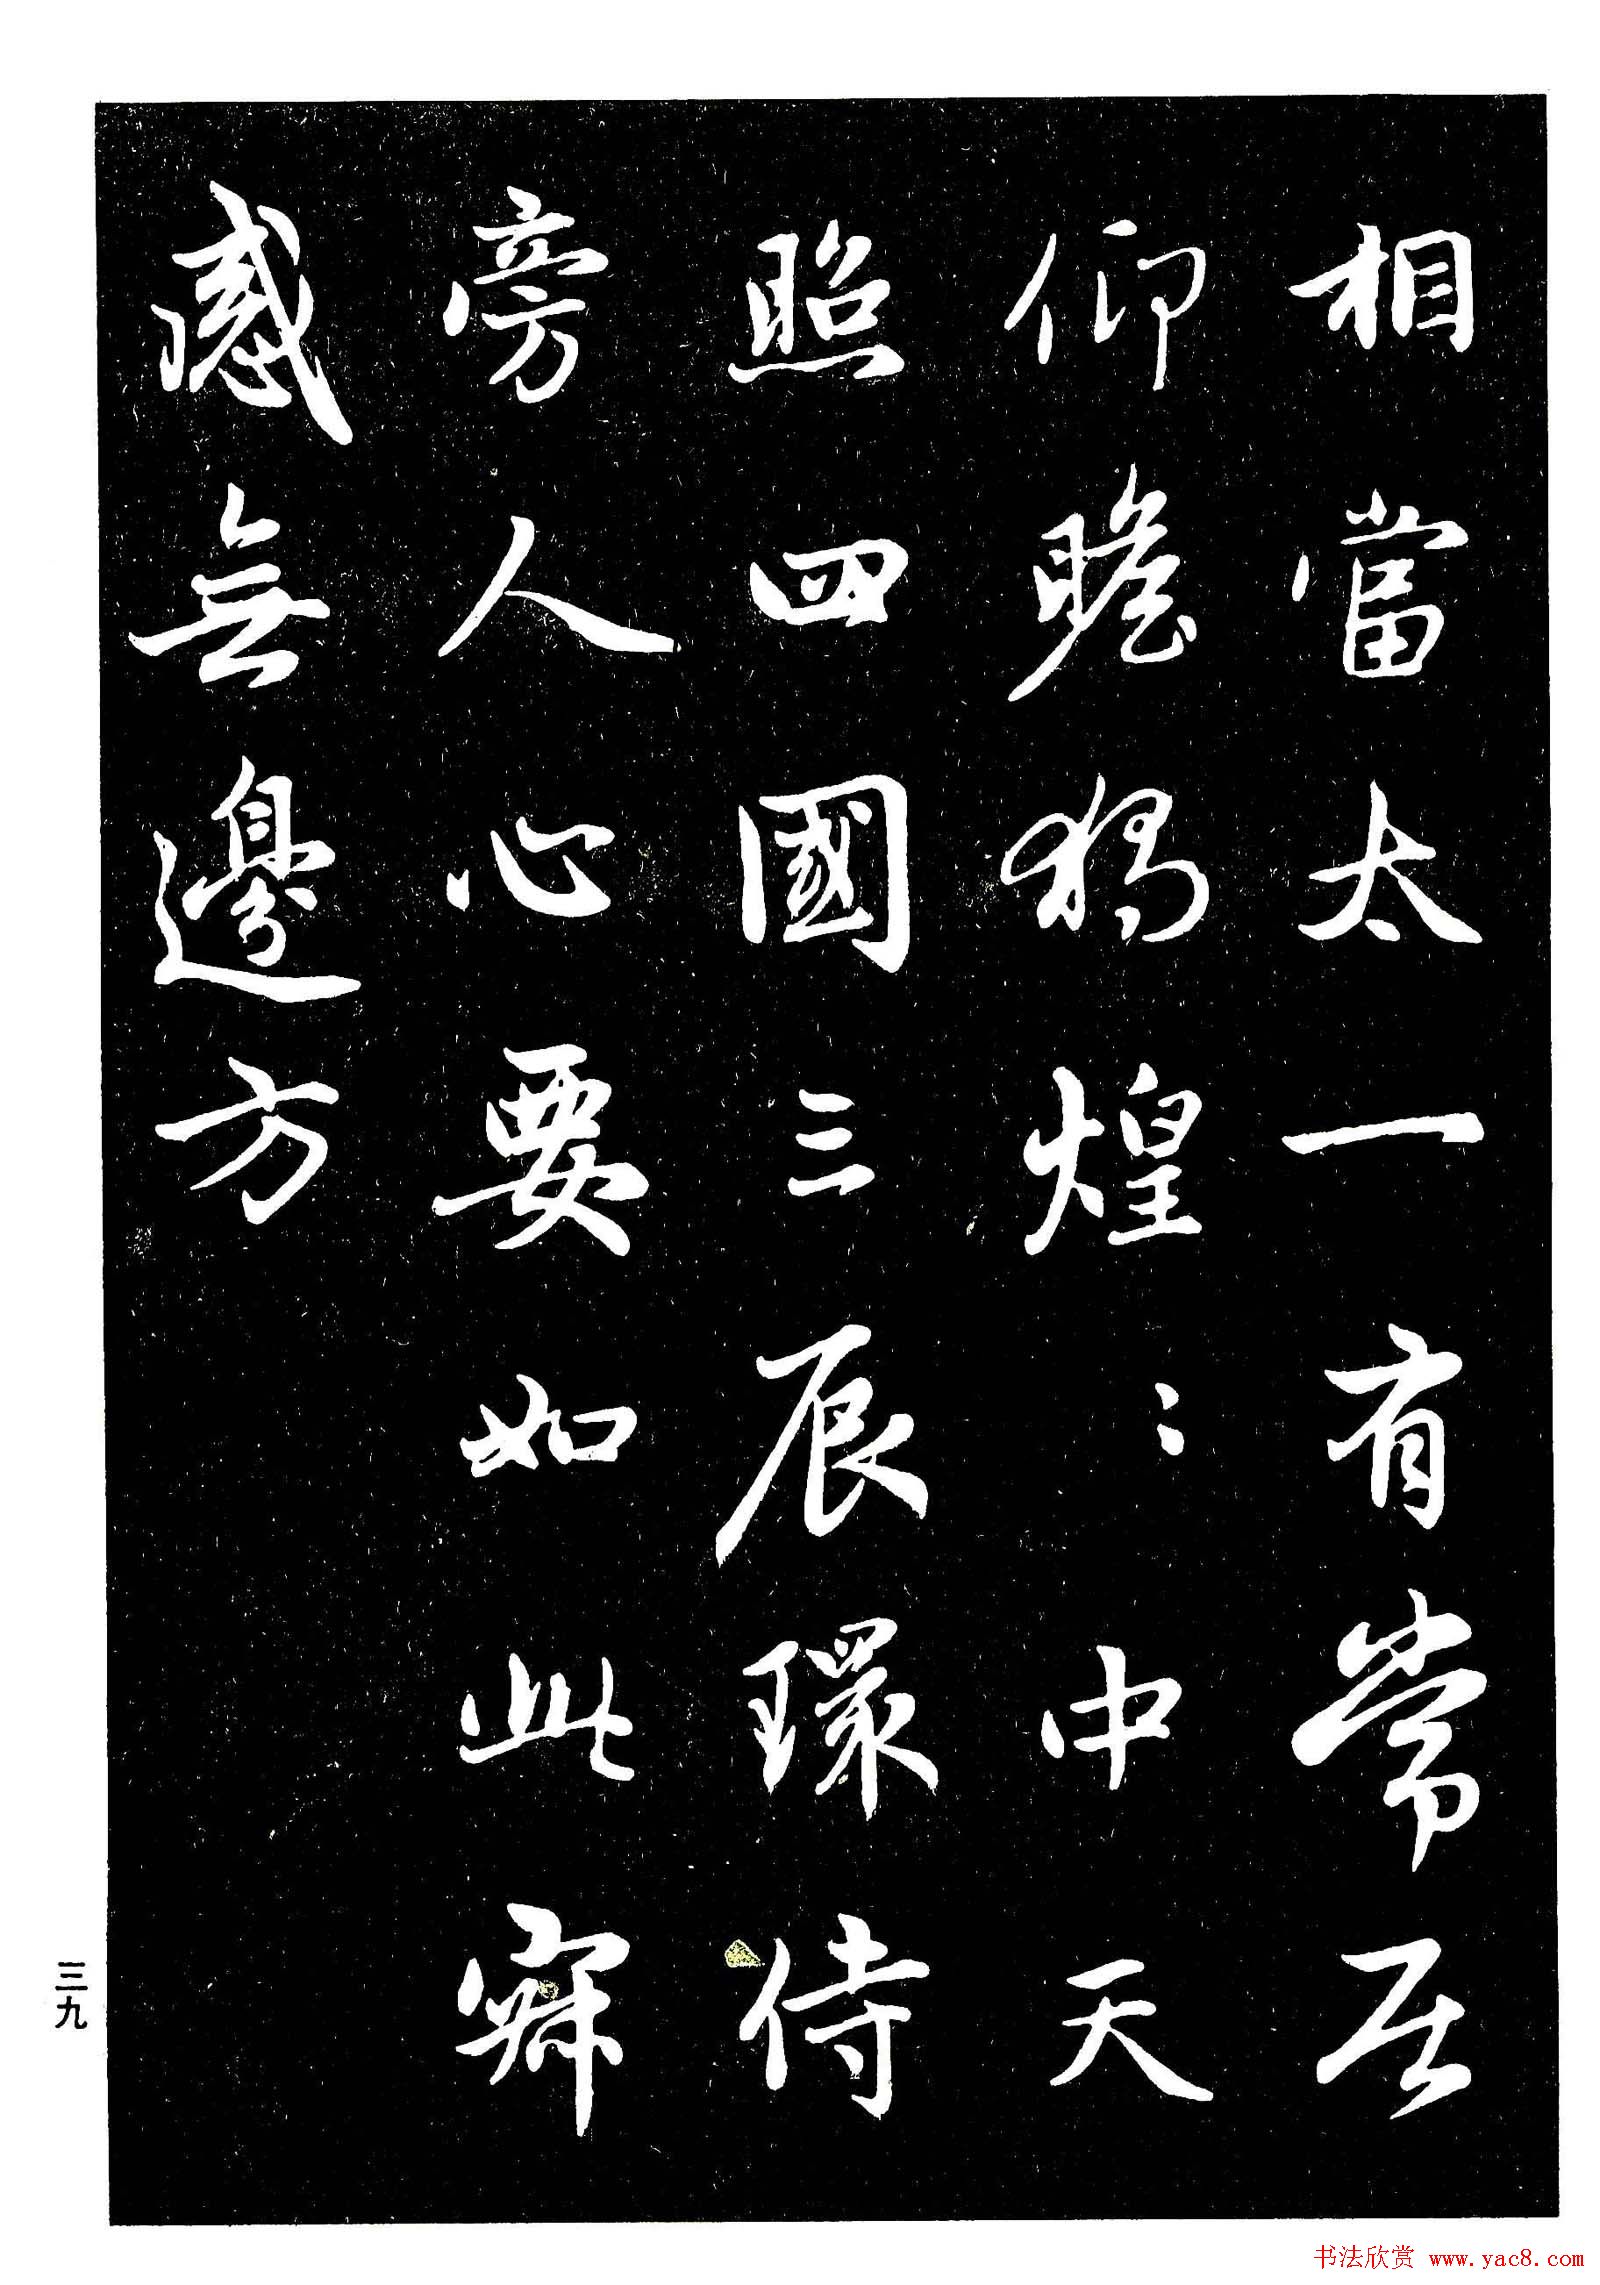 相當太一有常居
仰瞻獨煌〻中天
照四國三辰環侍
旁人心要如此寂
感無邊方
三九
书法欣赏 www.yac8.com